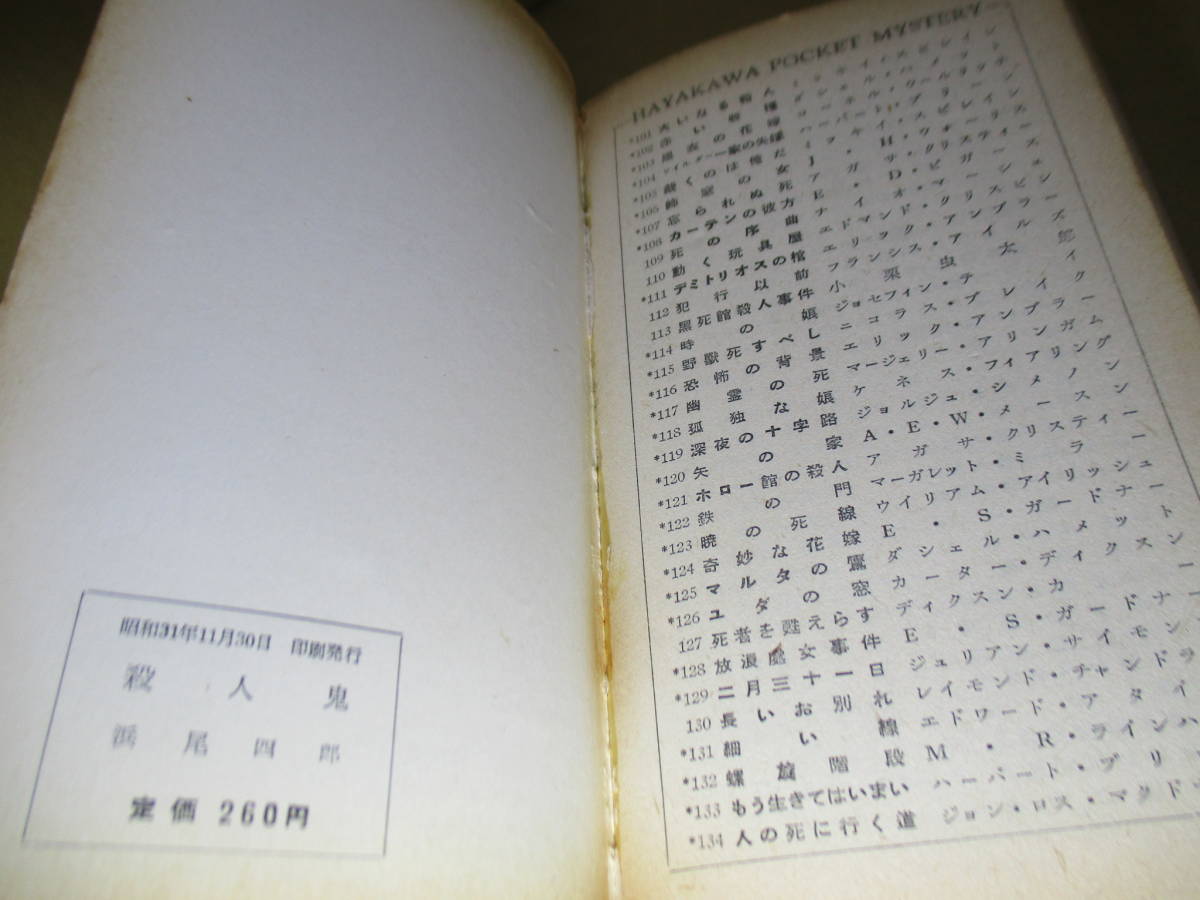 昭和31年11月30日 印刷発行
殺人鬼
浜尾四郎
定価 260円
HAYAKAWA POCKET MYSTERY
*101 大いなる殺人 ミッケイ・スピレイン
*102 赤い収穫 ダシェル・ハメット
*103 黒衣の花嫁 コーネル・ウールリッチ
*104 ワイルダー一家の失踪 ハーバート・ブリーン
*105 裁くのは俺だ ミッケイ・スピレイン
*106 飾窓の女 J・H・ウォーリス
*107 忘られぬ死 アガサ・クリスティー
*108 カーテンの彼方 E・D・ビガーズ
109 死の序曲 ナイオ・マーシュ
110 動く玩具屋 エドマンド・クリスピン
*111 デミトリオスの棺 エリック・アンブラー
112 犯行以前 フランシス・アイルズ
113 黒死館殺人事件 小栗虫太郎
*114 時の娘 ジョセフィン・テイ
*115 野獣死すべし ニコラス・ブレイク
*116 恐怖の背景 エリック・アンブラー
*117 幽霊の死 マージェリー・アリンガム
*118 孤独な娘 ケネス・フィアリング
*119 深夜の十字路 ジョルジュ・シメノン
*120 矢の家 A・E・W・メースン
*121 ホローの館の殺人 アガサ・クリスティー
*122 鉄の門 マーガレット・ミラー
*123 暁の死線 ウイリアム・アイリッシュ
*124 奇妙な花嫁 E・S・ガードナー
*125 マルタの鷹 ダシェル・ハメット
*126 ユダの窓 カーター・ディクスン
127 死者を甦えらす ディクスン・カー
*128 放浪処女事件 E・S・ガードナー
*129 二月三十一日 ジュリアン・サイモン
130 長いお別れ レイモンド・チャンドラ
*131 細い線 エドワード・アタイ
*132 螺旋階段 M・R・ラインハ
*133 もう生きてはいまい ハーバート・ブリ
*134 人の死に行く道 ジョン・ロス・マクド